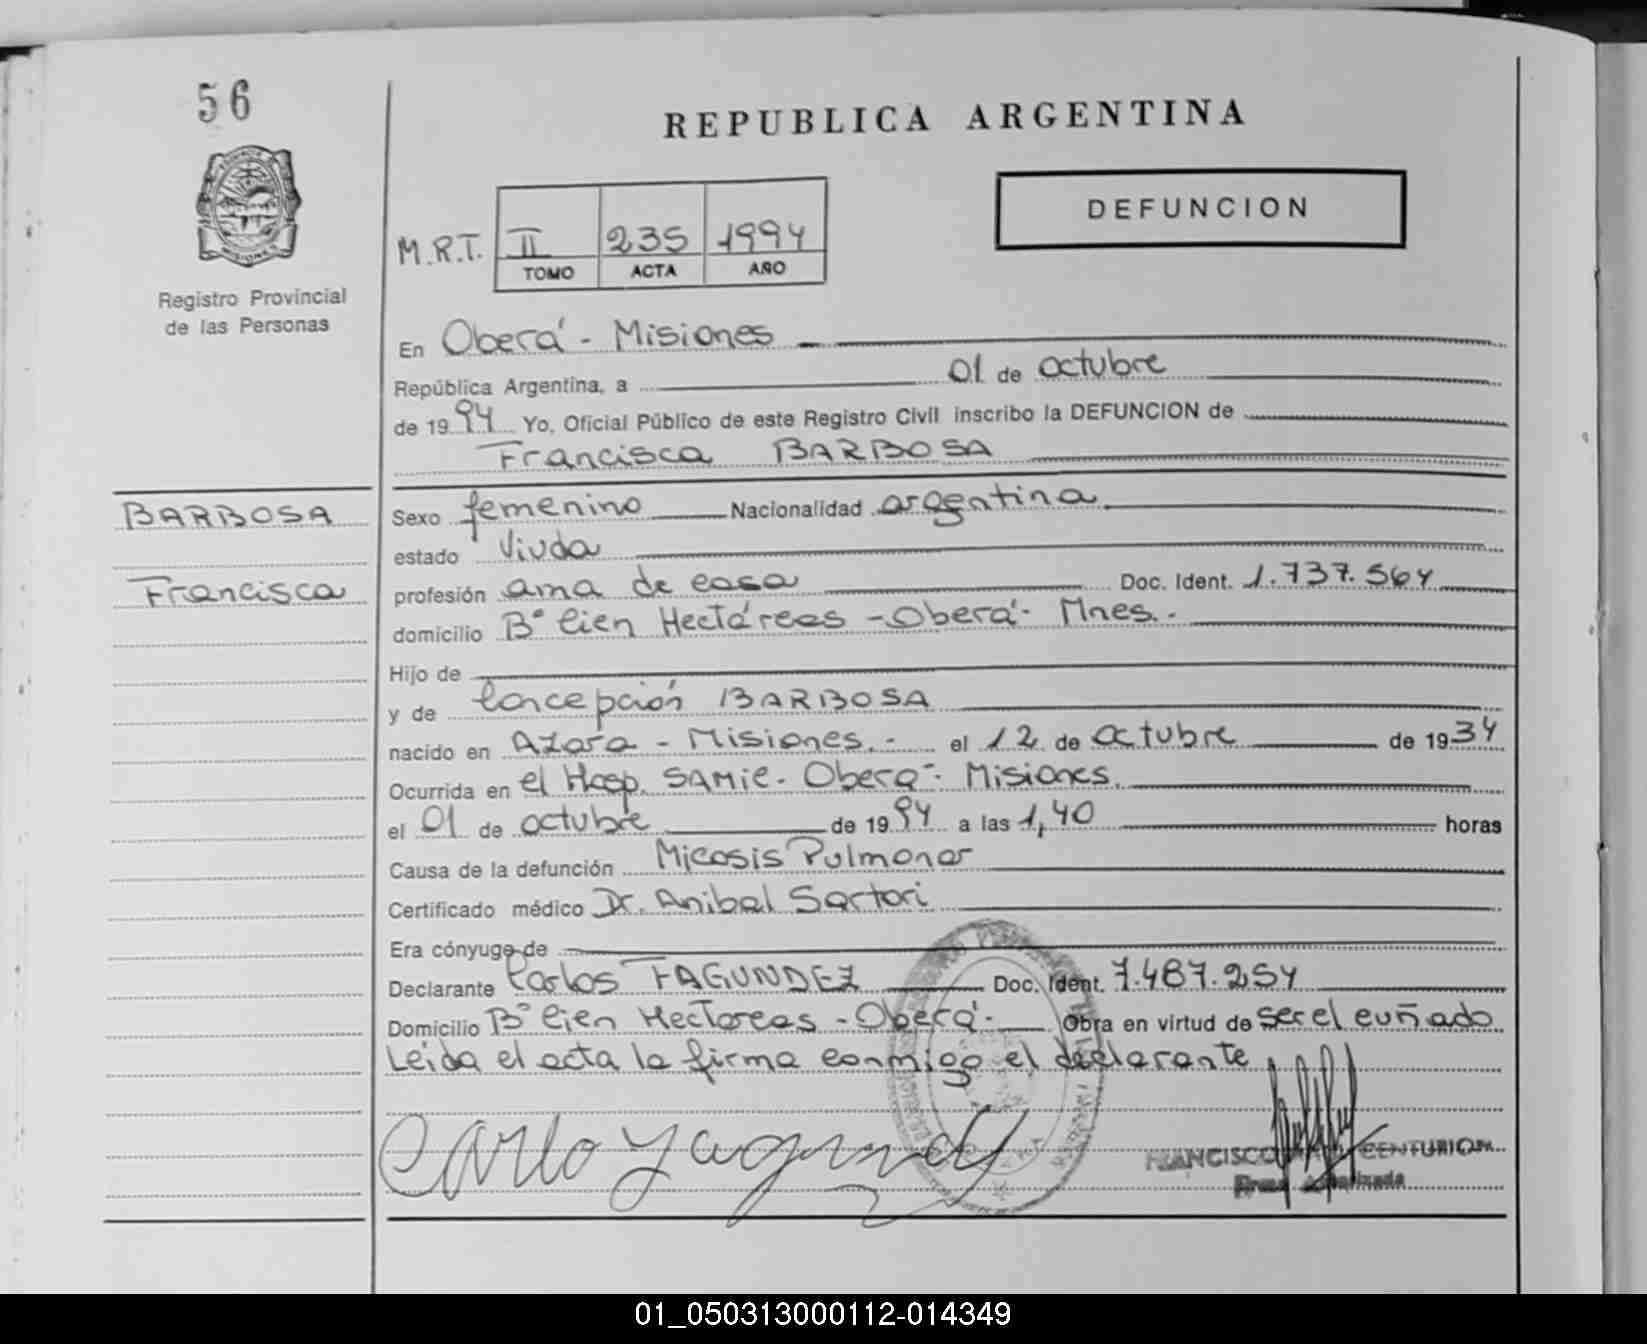 56
REPUBLICA ARGENTINA
DEFUNCION
M.R.T. II 235 1994
TOMO ACTA AÑO
MISIONES
Registro Provincial
de las Personas
En Oberá - Misiones
República Argentina, a 01 de octubre
de 1994 Yo, Oficial Público de este Registro Civil inscribo la DEFUNCION de
Francisca BARBOSA
BARBOSA
Francisca
Sexo femenino Nacionalidad argentina
estado Viuda
profesión ama de casa Doc. Ident. 1.737.564
domicilio B° Cien Hectáreas - Oberá - Mnes.-
Hijo de
y de Concepción BARBOSA
nacido en Azara - Misiones.- el 12 de octubre de 1934
Ocurrida en el Hosp. SAMIC - Oberá - Misiones.
el 01 de octubre de 1994 a las 1,40 horas
Causa de la defunción Micosis Pulmonar
Certificado médico Dr. Anibal Sartori
Era cónyuge de
Declarante Carlos FAGUNDEZ Doc. Ident. 7.487.254
Domicilio B° Cien Hectareas - Oberá - Obra en virtud de ser el cuñado
Leida el acta la firma conmigo el declarante
FRANCISCO CENTURION
Firma Autorizada
01_050313000112-014349